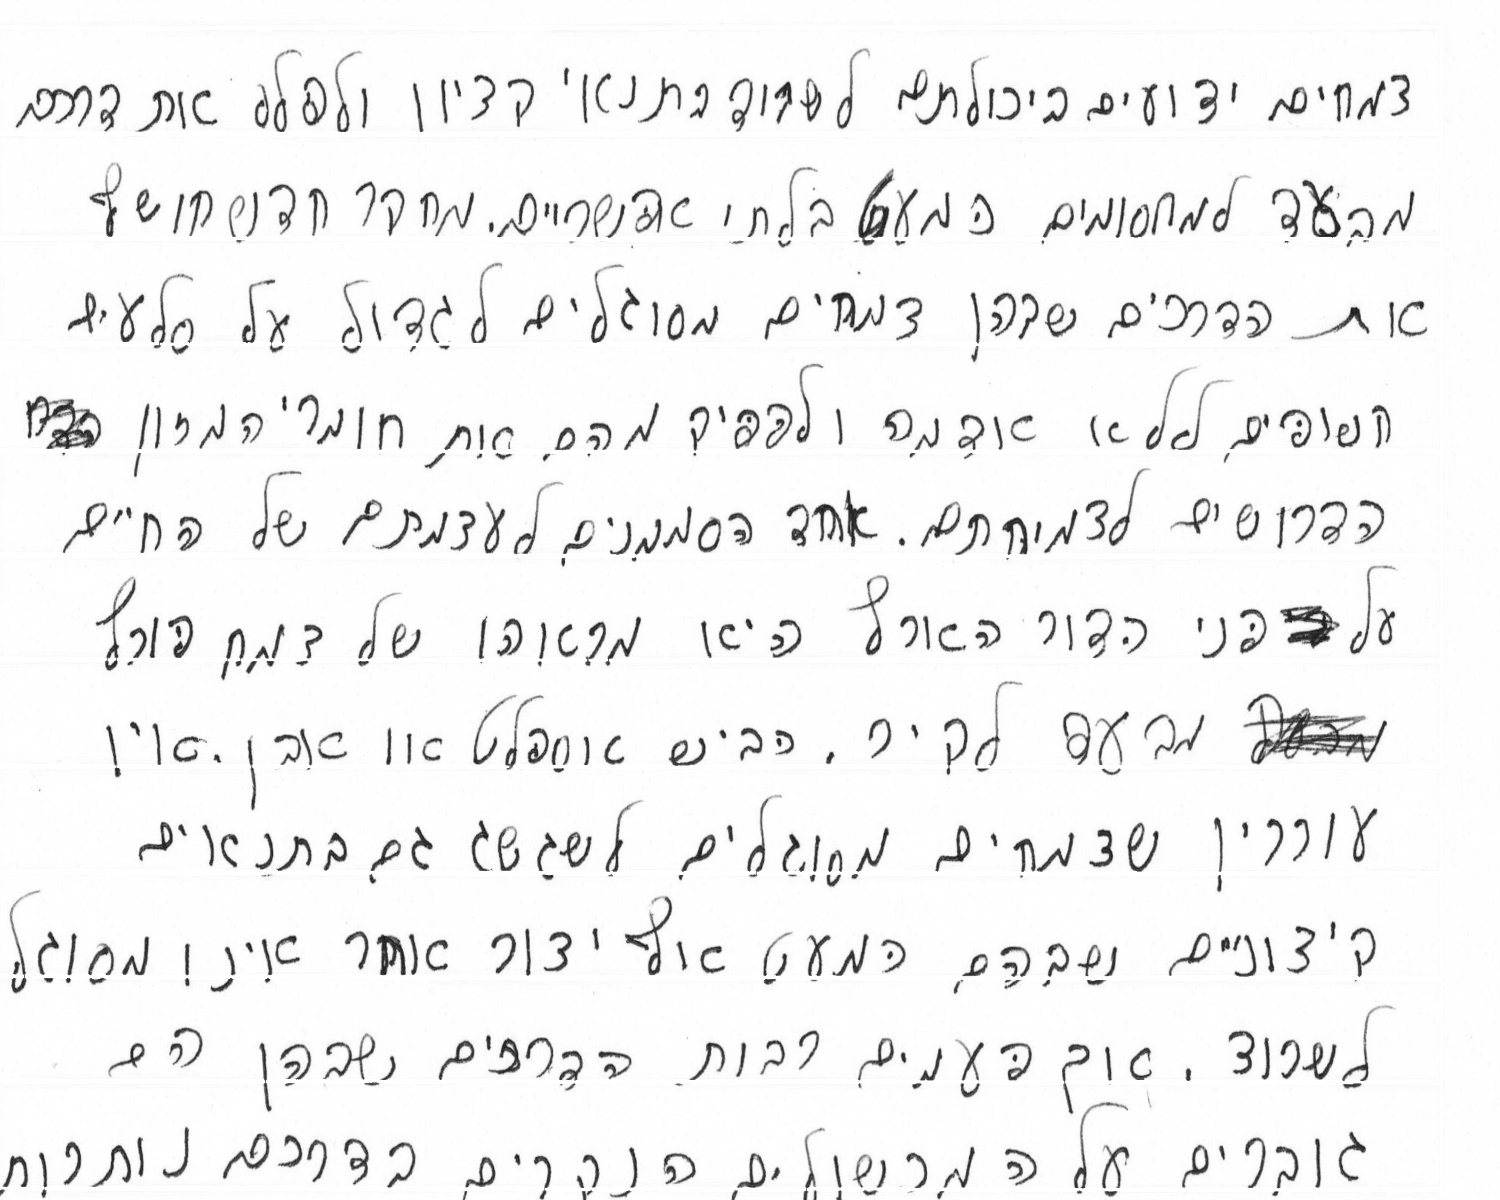 צמחים ידועים ביכולתם לשרוד בתנאי קציון ולפלס את דרכם
מבעד למחסומים כמעט בלתי אפשריים. מחקר חדש חושף
את הדרכים שבהן צמחים מסוגלים לגדול על סלעים
חשופים ללא אדמה ולהפיק מהם את חומרי המזון
הדרושים לצמיחתם. אחד הסממנים לעצמתם של החיים
על פני כדור הארץ היא מראהו של צמח פורץ
מבעד לקיר, כביש אספלט או אבן. אין
עוררין שצמחים מסוגלים לשגשג גם בתנאים
קיצוניים שבהם כמעט אף יצור אחר אינו מסוגל
לשרוד, אך פעמים רבות הדרכים שבהן הם
גוברים על המכשולים הנקרים בדרכם נותרות